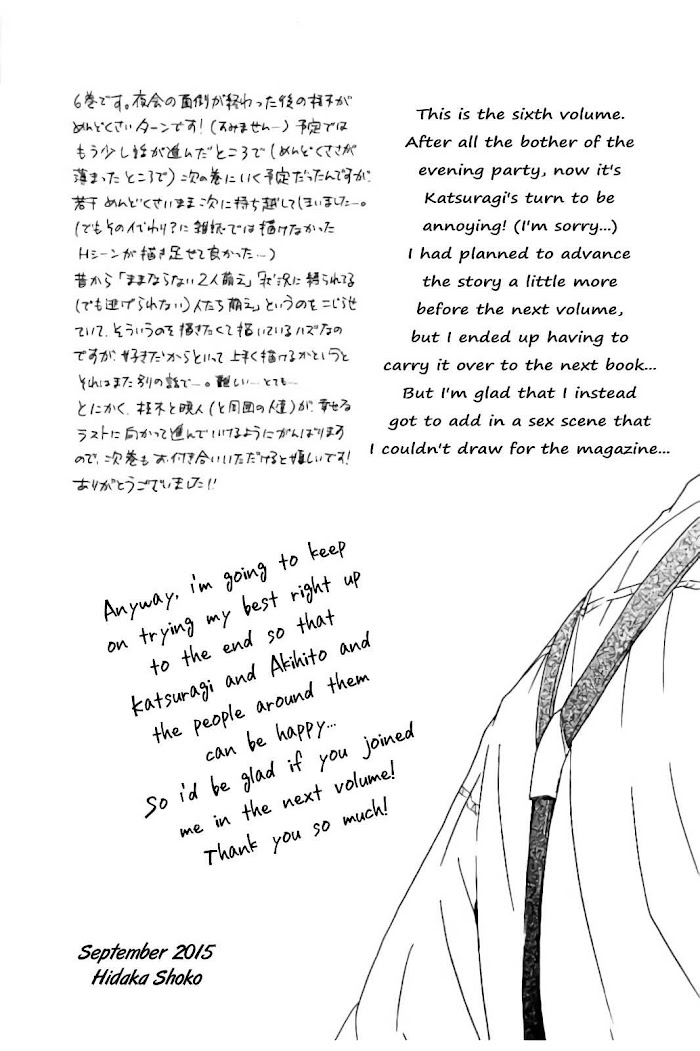 6巻です。夜会の面倒が終わった後の桂木が
めんどくさいターンです!(すみません…)予定では
もう少し話が進んだところで(めんどくささが
薄まったところで)次の巻にいく予定だったんですが、
若干めんどくさいまま次に持ち越してしまいました…。
(でもその代わり?に雑誌では描けなかった
Hシーンが描き足せて良かった…)
昔から「ままならない2人萌え」「状況に縛られてる
(でも逃げられない)人たち萌え」というのをこじらせ
ていて、そういうのを描きたくて描いているハズなの
ですが、好きだからといって上手く描けるかというと
それはまた別の話で…。難しい…とても…
とにかく、桂木と暁人(と周囲の人達)が、幸せな
ラストに向かって進んでいけるようにがんばります
ので、次巻もお付き合いいただけると嬉しいです!
ありがとうございました!!
This is the sixth volume.
After all the bother of the
evening party, now it's
Katsuragi's turn to be
annoying! (I'm sorry...)
I had planned to advance
the story a little more
before the next volume,
but I ended up having to
carry it over to the next book...
But I'm glad that I instead
got to add in a sex scene that
I couldn't draw for the magazine...
Anyway, i'm going to keep
on trying my best right up
to the end so that
Katsuragi and Akihito and
the people around them
can be happy...
So i'd be glad if you joined
me in the next volume!
Thank you so much!
September 2015
Hidaka Shoko